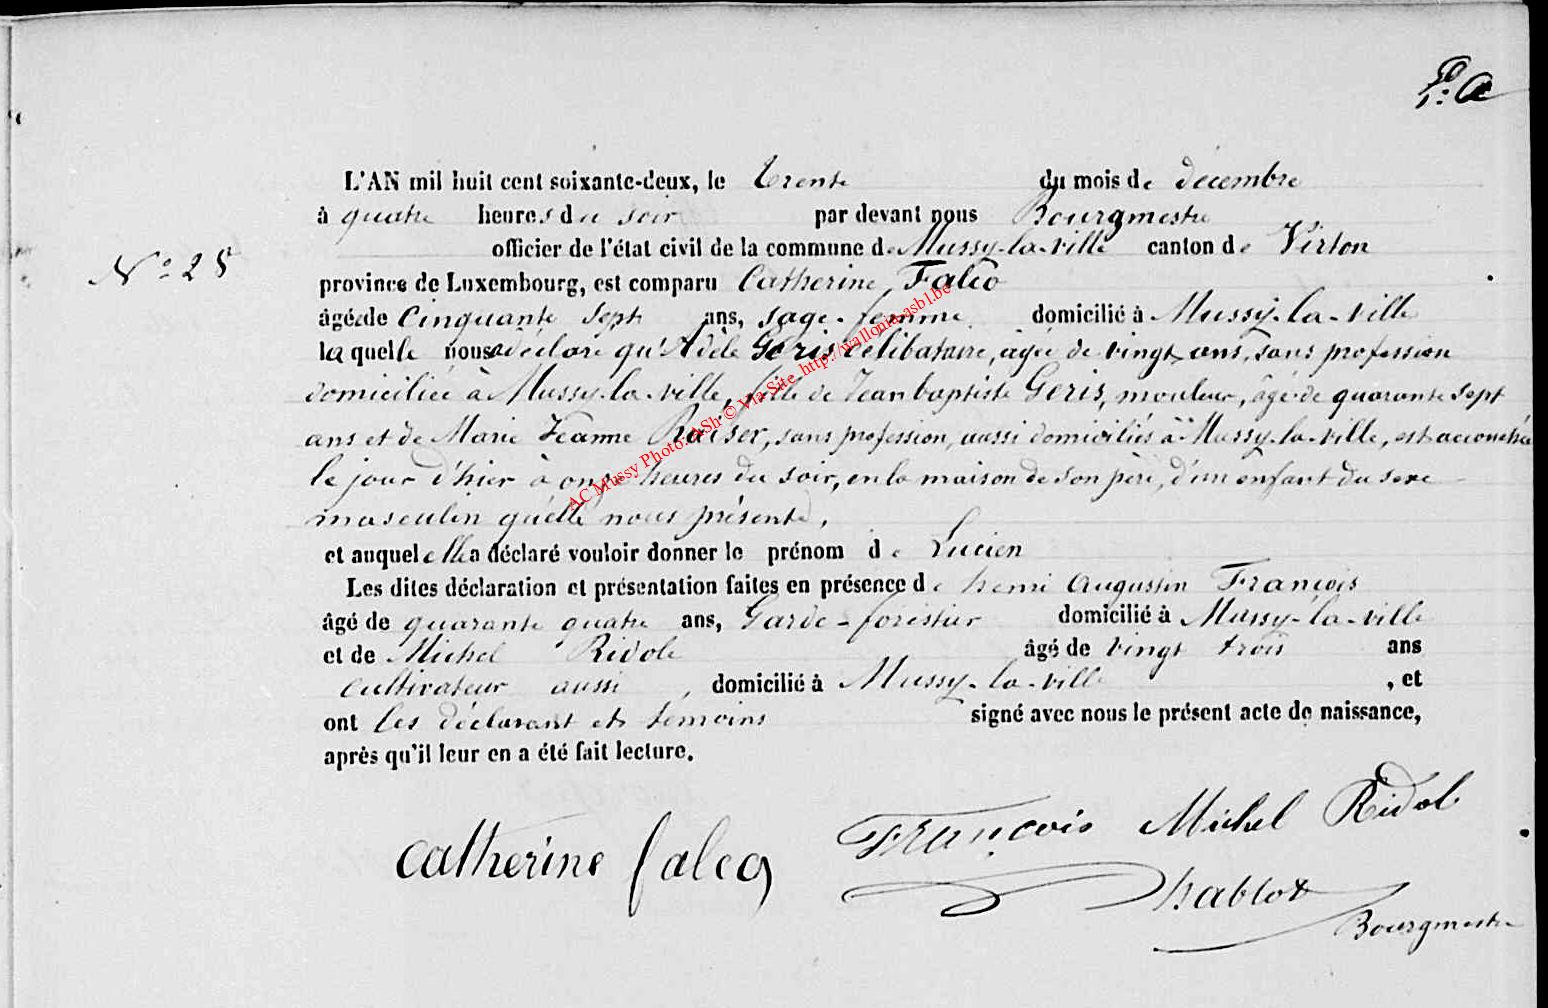 L'AN mil huit cent soixante-deux, le trente du mois de décembre
à quatre heures du soir par devant nous Bourgmestre
officier de l'état civil de la commune de Mussy-la-ville canton de Virton
N.° 25
province de Luxembourg, est comparu Catherine Falco
âgée de cinquante sept ans, sage-femme domicilié à Mussy-la-ville
laquelle nous a déclaré qu'Adèle Geris célibataire, agée de vingt ans, sans profession
domiciliée à Mussy-la-ville, fille de Jean baptiste Geris, mouleur, âgé de quarante sept
ans et de Marie Jeanne Raiser, sans profession, aussi domiciliés à Mussy-la-ville, est accouchée
le jour d'hier à onze heures du soir, en la maison de son père, d'un enfant du sexe
masculin qu'elle nous présente,
et auquel elle a déclaré vouloir donner le prénom de Lucien
Les dites déclaration et présentation faites en présence de henri augustin François
âgé de quarante quatre ans, Garde-forestier domicilié à Mussy-la-ville
et de Michel Ridole âgé de vingt trois ans
cultivateur aussi, domicilié à Mussy-la-ville, et
ont les déclarant et témoins signé avec nous le présent acte de naissance,
après qu'il leur en a été fait lecture.
catherine falco
François Michel Ridol
hablot
Bourgmestre
AC Mussy Photo: ASh © Via Site http://wallonia-asbl.be